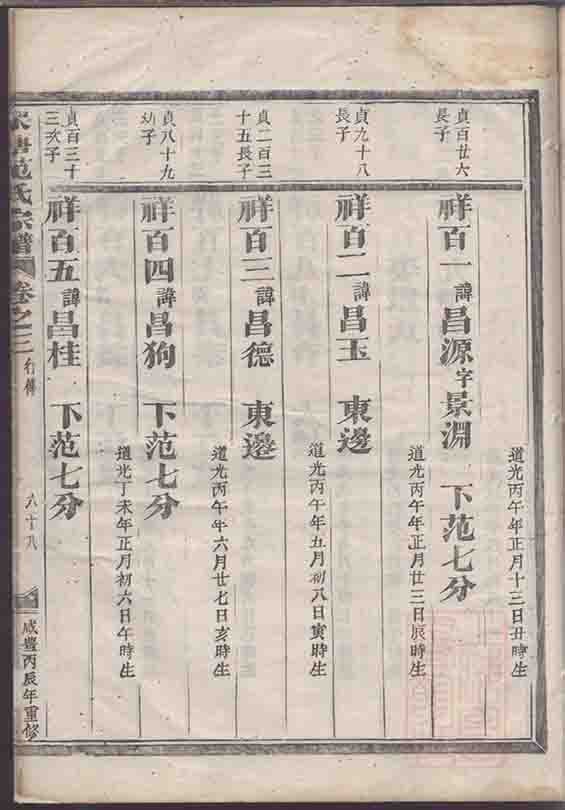 道光丙午年正月十三日丑時生
貞百廿六
長子
祥百一諱昌源字景淵 下范七分
道光丙午年正月廿三日辰時生
貞九十八
長子
祥百二諱昌玉 東邊
道光丙午年五月初八日寅時生
貞二百三
十五長子
祥百三諱昌德 東邊
道光丙午年六月廿七日亥時生
貞八十九
幼子
祥百四諱昌狗 下范七分
道光丁未年正月初六日午時生
貞百三十
三次子
祥百五諱昌桂 下范七分
范氏宗譜 卷之三 行傳 六十八 咸豐丙辰年重修